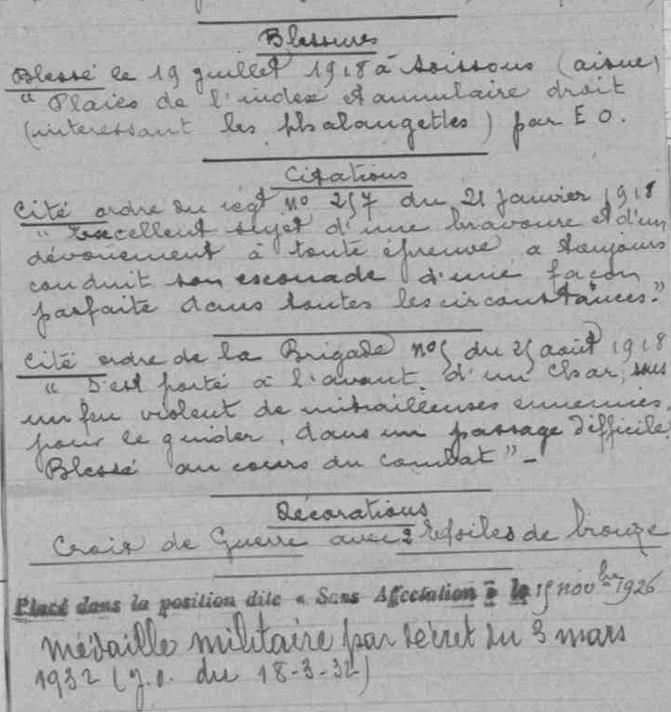 Blessures
Blessé le 19 juillet 1918 à Soissons (aisne)
"Plaies de l'index et annulaire droit
(interessant les phalangettes) par E O.
Citations
Cité ordre du régt no 257 du 21 janvier 1918
"Excellent sujet d'une bravoure et d'un
dévouement à toute épreuve a toujours
conduit son escouade d'une façon
parfaite dans toutes les circonstances."
Cité ordre de la Brigade no 5 du 25 août 1918
"S'est porté à l'avant d'un char, sous
un feu violent de mitrailleuses ennemies,
pour le guider, dans un passage difficile
Blessé au cours du combat" -
Décorations
Croix de Guerre avec 2 Etoiles de bronze
Placé dans la position dite « Sans Affectation » le 15 novbre 1926
médaille militaire par décret du 3 mars
1932 (J.O. du 18-3-32)